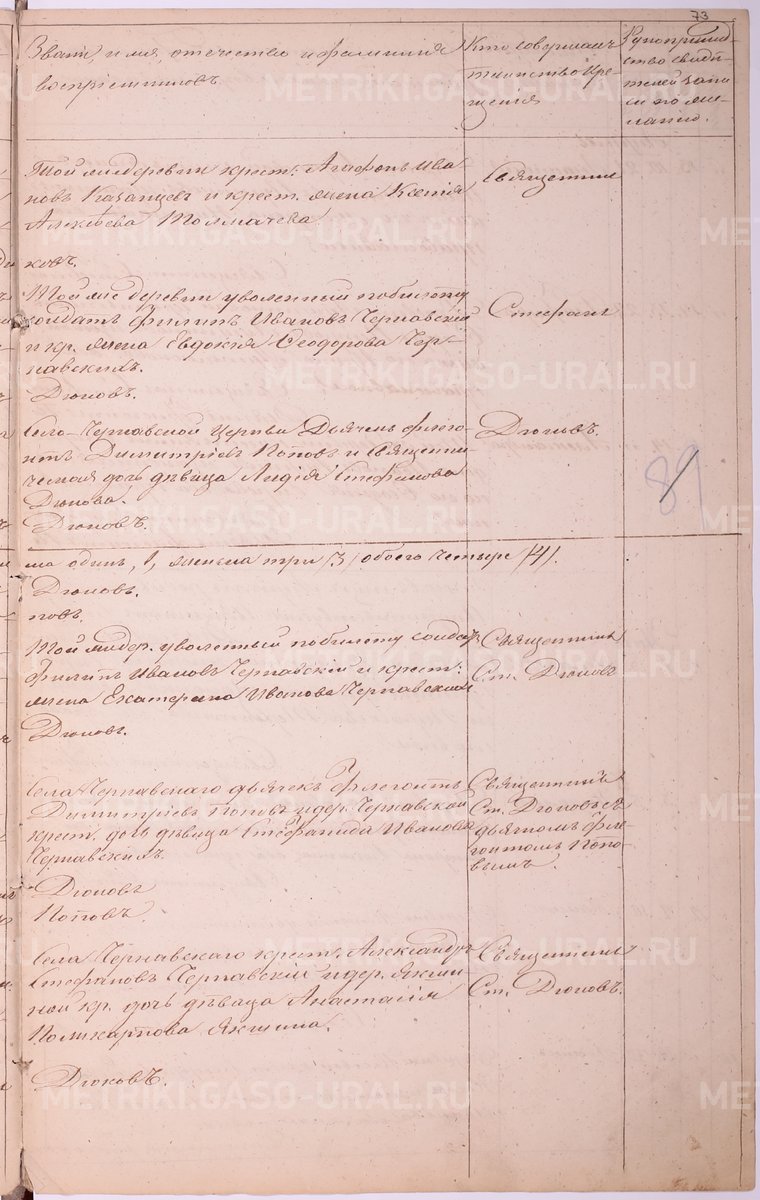 73
Званіе, имя, отечество и фамилія
воспріемниковъ.
Кто совершалъ
таинство кре-
щенія
Рукоприклад-
ство свидѣ-
телей запи-
си по же-
ланію.
Той же деревни крест. Агафонъ Ива
новъ Казанцевъ и крест. жена Ксенія
Алексѣева Толмачева.
ковъ.
Священник
Той же деревни уволенный по билету
солдатъ Филипъ Ивановъ Чернавскій
и кр. жена Евдокія Ѳеодорова Чер-
навскихъ.
Дюковъ.
Стефанъ
Село-Чернавской Церкви Дьячекъ Флего-
нтъ Димитріевъ Поповъ и Священни-
ческая дочь дѣвица Лидія Стефанова
Дюкова.
Дюковъ.
Дюковъ.
89
на одинъ, 1, женска три /3/ обоего четыре /4/.
Дюковъ.
повъ.
Той же дер. уволенный по билету солдат
Филипъ Ивановъ Чернавскій и крест.
жена Екатерина Иванова Чернавских
Дюковъ.
Священникъ
Ст. Дюковъ
Села Чернавскаго дьячекъ Флегонтъ
Димитріевъ Поповъ и дер. Чернавской
крест. дочь дѣвица Стефанида Иванова
Чернавскихъ.
Дюковъ
Поповъ.
Священникъ
Ст. Дюковъ съ
дьячкомъ Фле-
гонтомъ Попо-
вымъ.
Села Чернавскаго крест. Александръ
Стефановъ Чернавскій и дер. Якши-
ной кр. дочь дѣвица Анастасія
Поликарпова Якшина.
Дюковъ.
Священник
Ст. Дюковъ.
METRIKI.GASO-URAL.RU